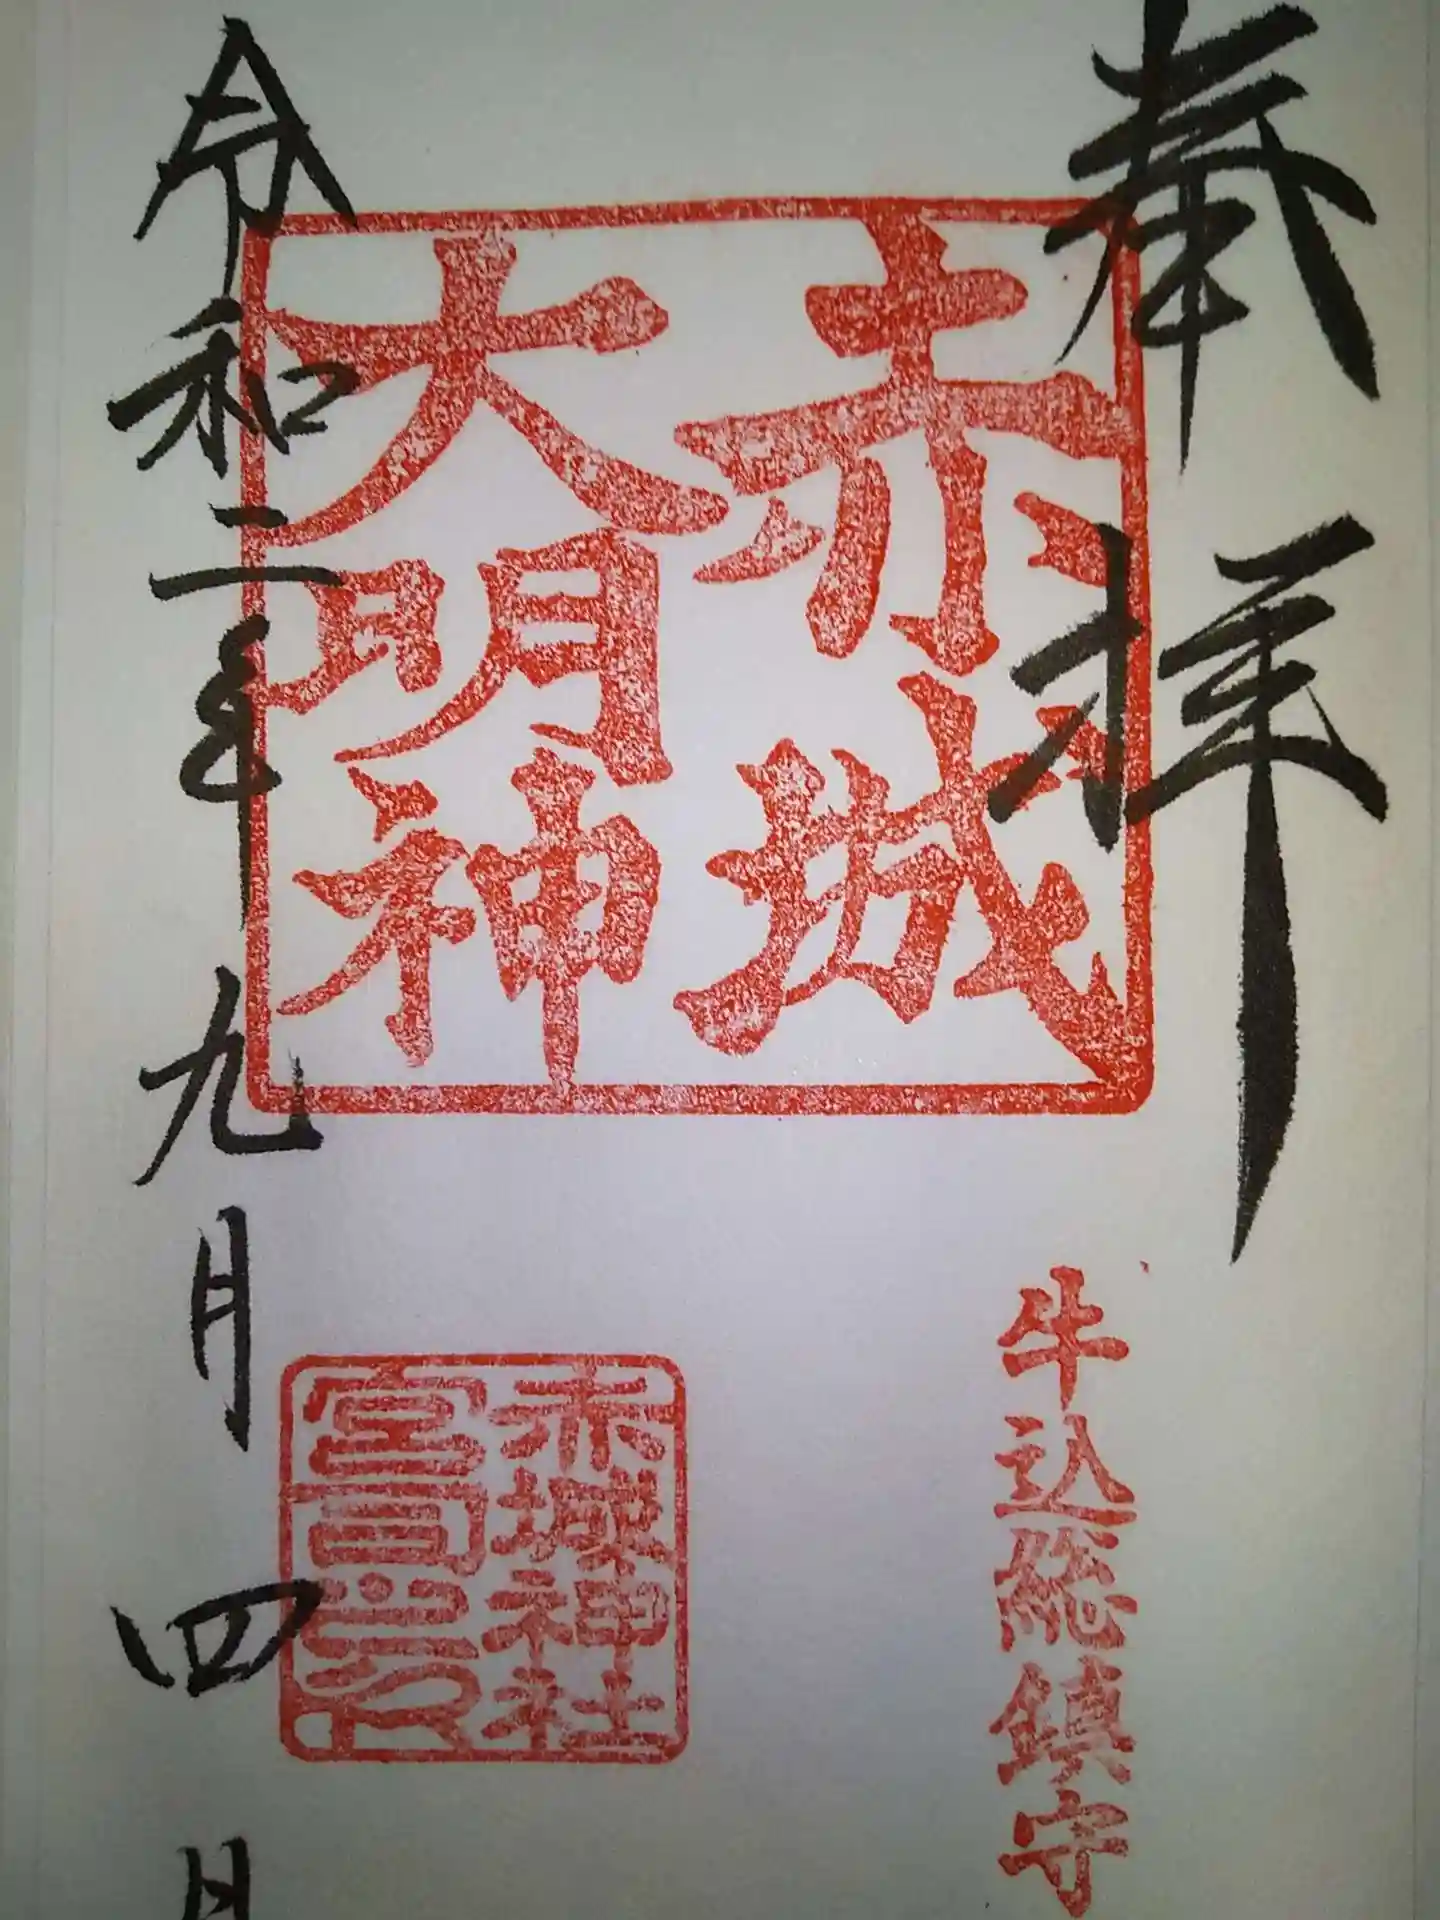 奉拝
牛込総鎮守
赤城
大明神
赤城神社
宮司之印
令和二年九月四日